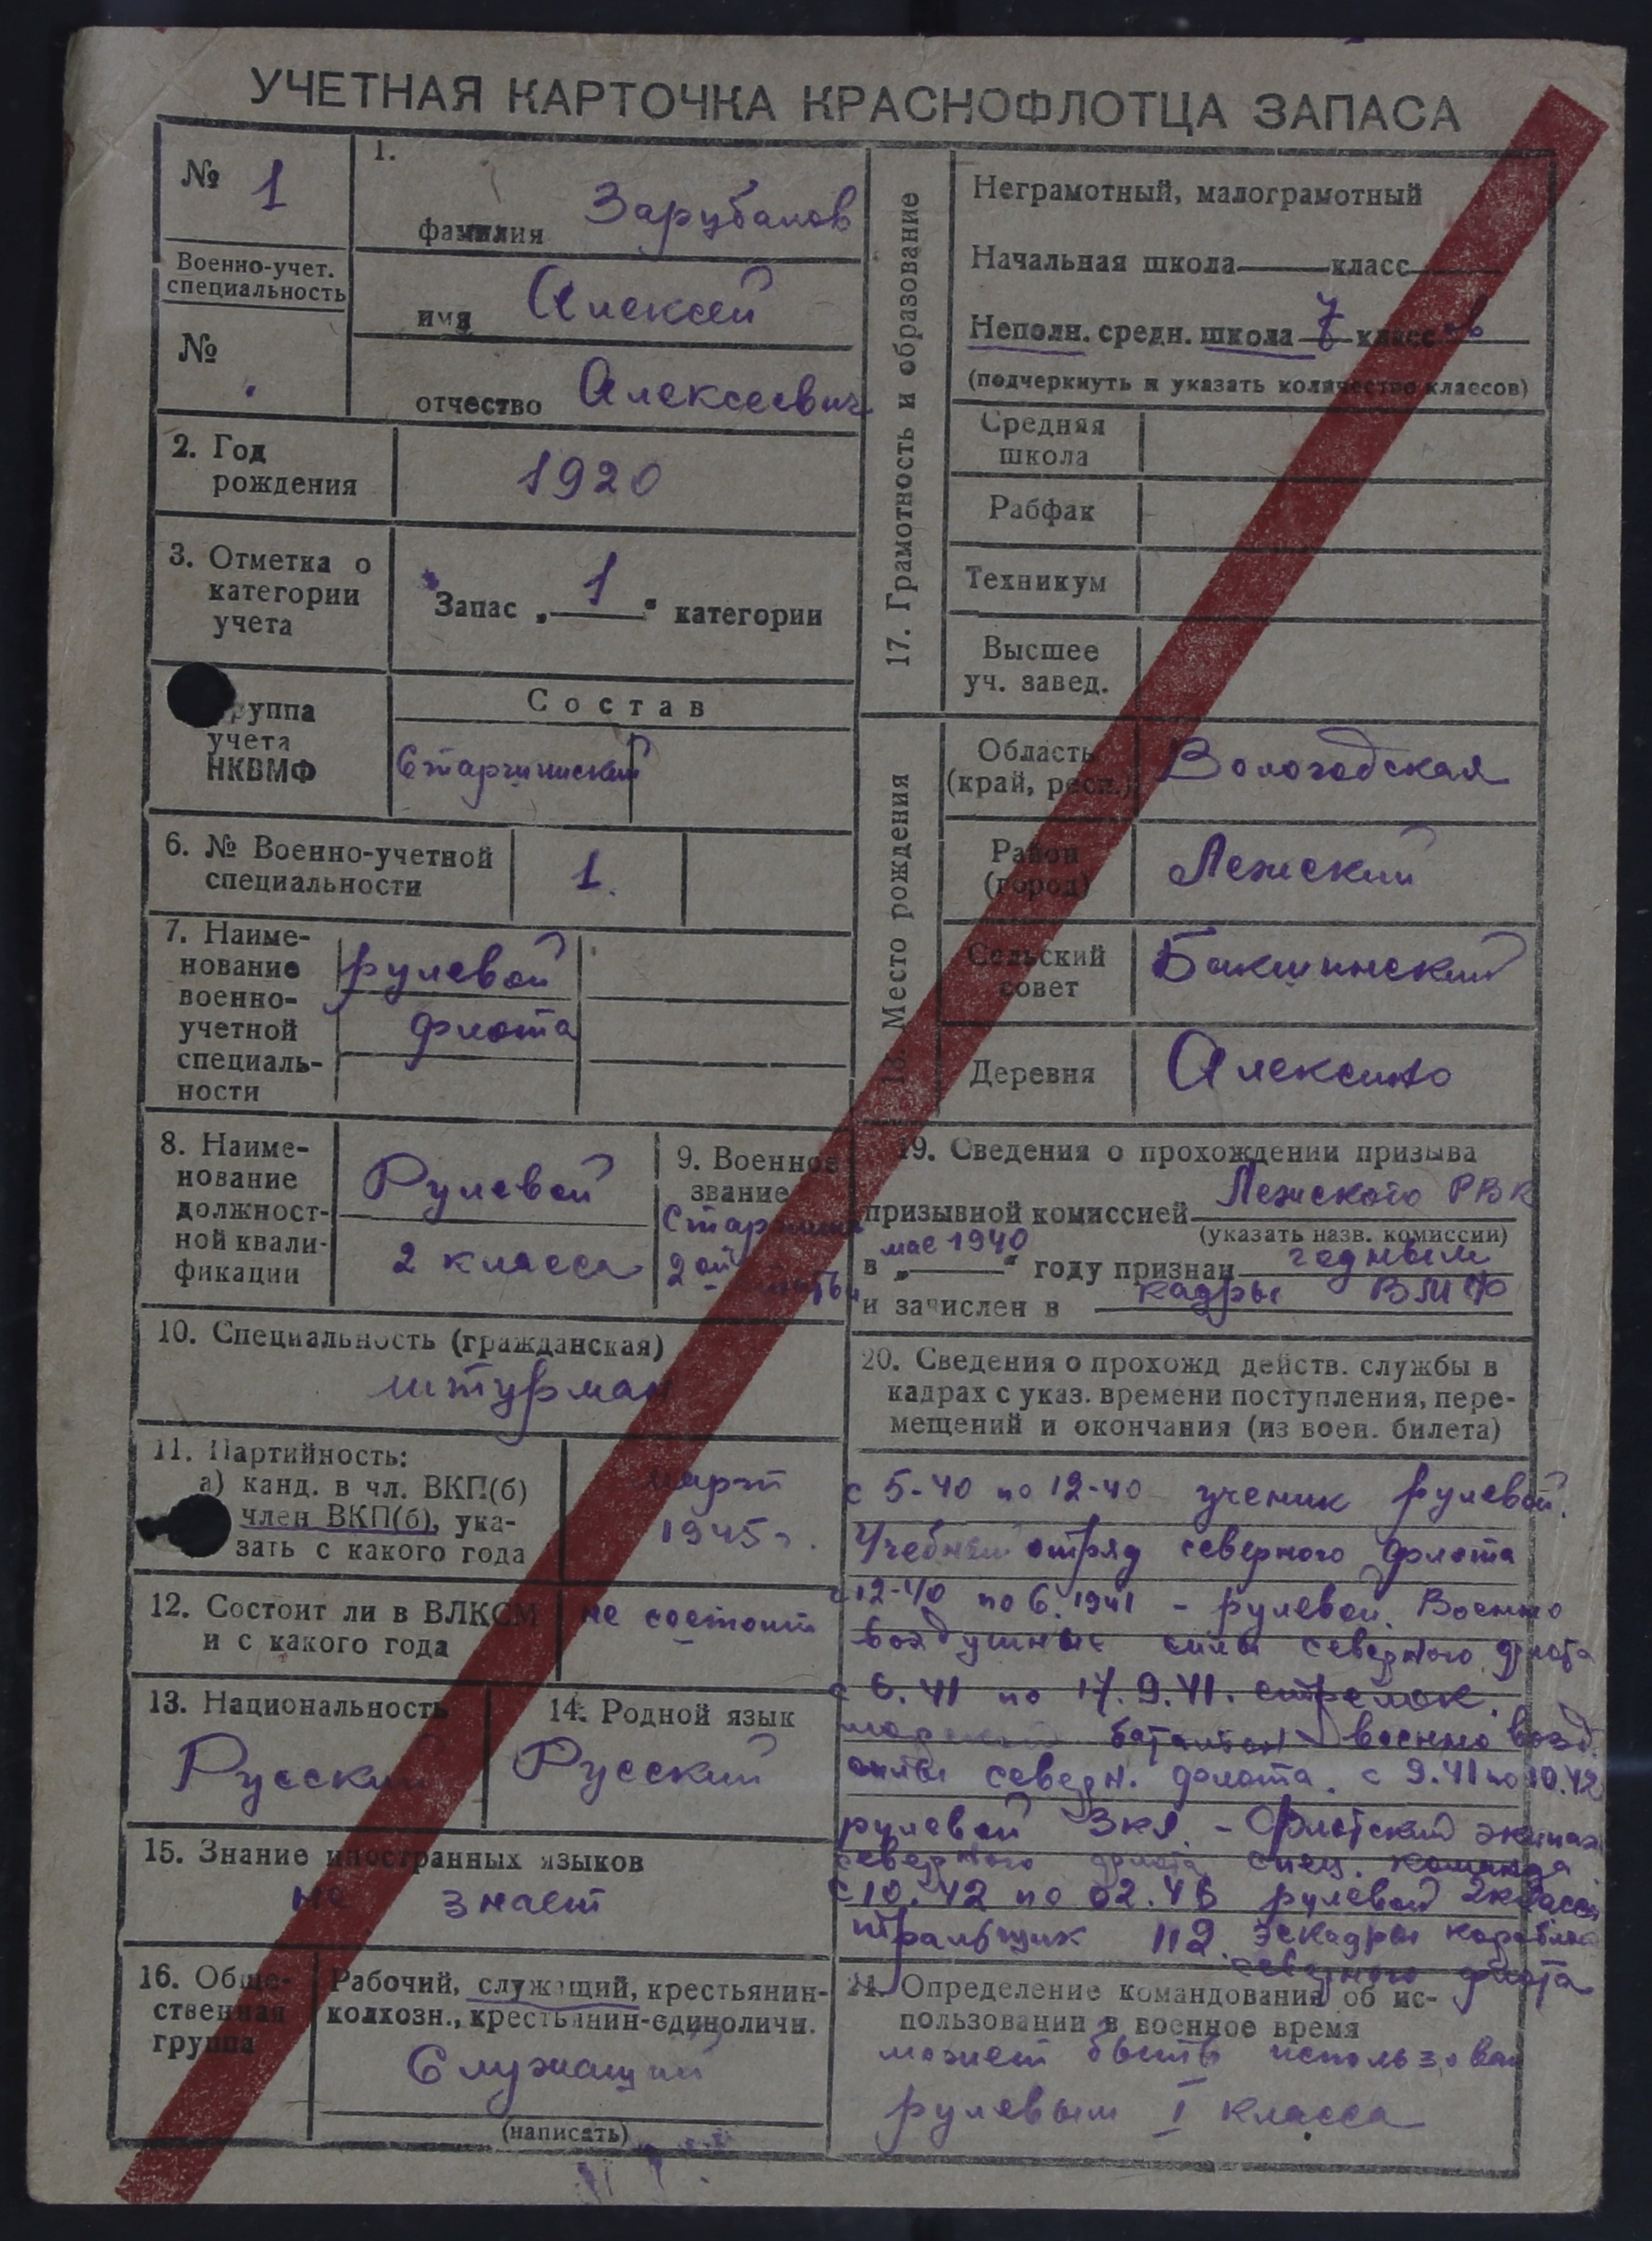 УЧЕТНАЯ КАРТОЧКА КРАСНОФЛОТЦА ЗАПАСА
№ 1
Военно-учет.
специальность
№
1.
фамилия Зарубалов
имя Алексей
отчество Алексеевич
2. Год
рождения
1920
3. Отметка о
категории
учета
Запас „ 1 “ категории
руппа
учета
НКВМФ
Состав
Старшинский
6. № Военно-учетной
специальности
1.
7. Наиме-
нование
военно-
учетной
специаль-
ности
рулевой
флота
8. Наиме-
нование
должност-
ной квали-
фикации
Рулевой
2 класса
9. Военное
звание
Старшина
2ой статьи
10. Специальность (гражданская)
штурман
11. Партийность:
а) канд. в чл. ВКП(б)
член ВКП(б), ука-
зать с какого года
март
1945г.
12. Состоит ли в ВЛКСМ
и с какого года
не состоит
13. Национальность
Русский
14. Родной язык
Русский
15. Знание иностранных языков
не знает
16. Обще-
ственная
группа
Рабочий, служащий, крестьянин-
колхозн., крестьянин-единоличн.
Служащий
(написать)
17. Грамотность и образование
Неграмотный, малограмотный
Начальная школа класс
Неполн. средн. школа 7 класс ов
(подчеркнуть и указать количество классов)
Средняя
школа
Рабфак
Техникум
Высшее
уч. завед.
18. Место рождения
Область
(край, респ.)
Вологодская
Район
(город)
Лежский
Сельский
совет
Бакшинский
Деревня
Алексино
19. Сведения о прохождении призыва
призывной комиссией Лежского РВК
(указать назв. комиссии)
в „ мае 1940 “ году признан годным
и зачислен в кадры ВМФ
20. Сведения о прохожд действ. службы в
кадрах с указ. времени поступления, пере-
мещений и окончания (из воен. билета)
с 5-40 по 12-40 ученик рулевой.
Учебный отряд северного флота
с 12-40 по 6.1941 - рулевой. Военно
воздушные силы северного флота
с 6.41 по 17.9.41. стрелок.
батальон военно возд.
силы северн. флота. с 9.41 по 10.42
рулевой 3кл. - Флотский экипаж
северного флота спец. команда
с 10.42 по 02.46 рулевой 2класса
тральщик 112. эскадры
северного флота
21. Определение командования об ис-
пользовании в военное время
может быть использован
рулевым I класса